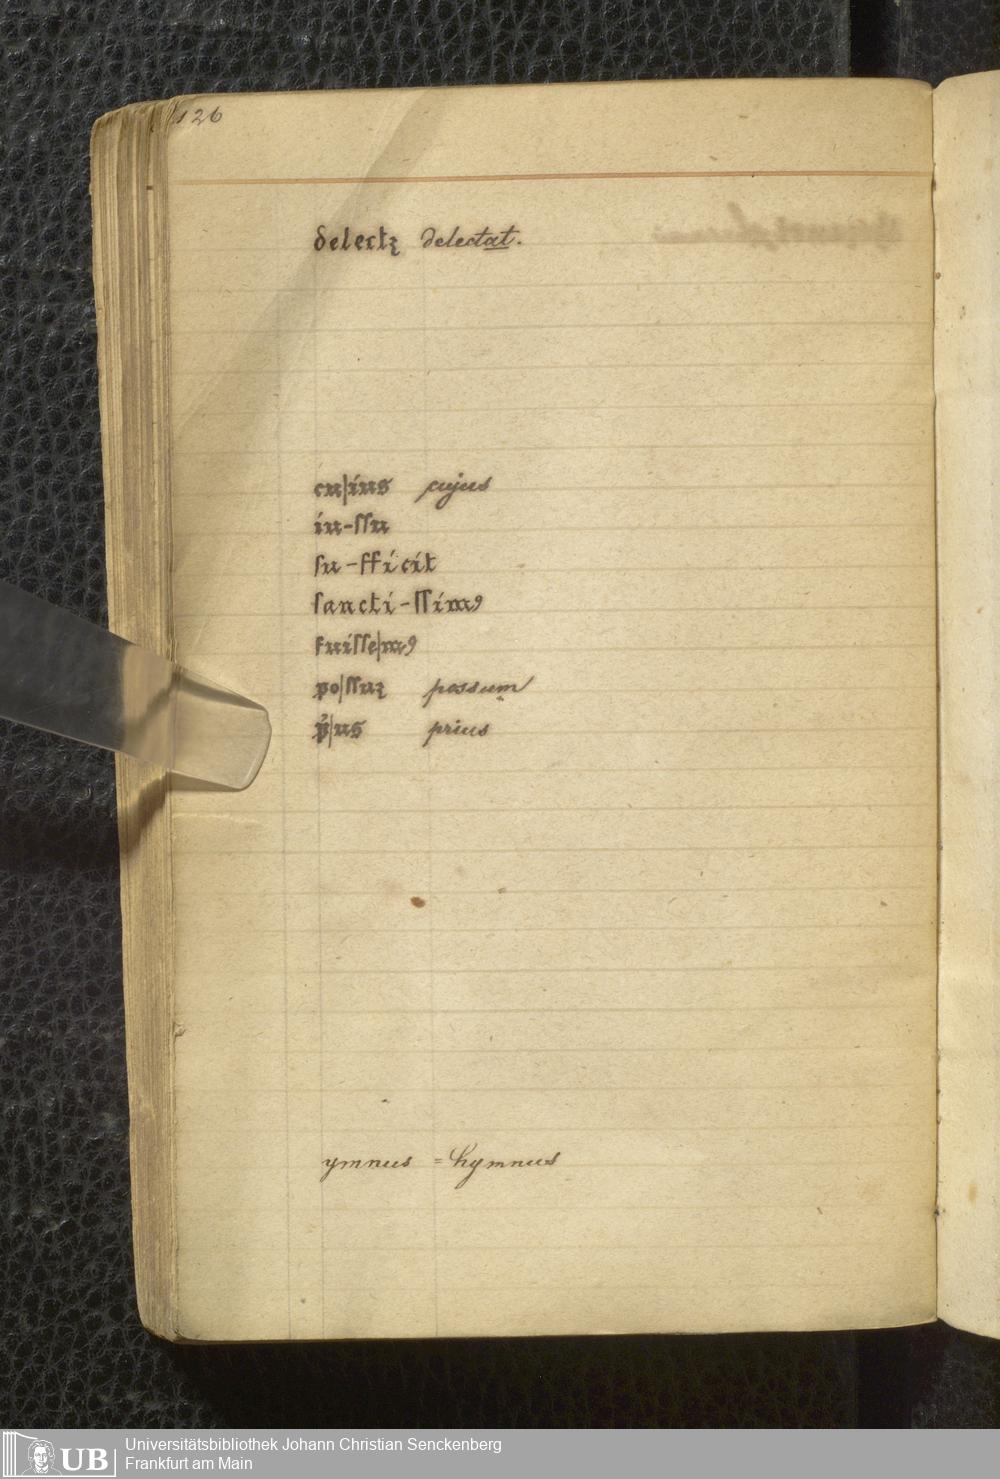 126
delectꝫ delectat.
cu|ius cujus
iu-ſſu
ſu-fficit
ſancti-ſſimꝰ
fuiſſe|mꝰ
po|ſſuꝫ possum
p̍|us prius
ymnus = hymnus
UB Universitätsbibliothek Johann Christian Senckenberg
Frankfurt am Main